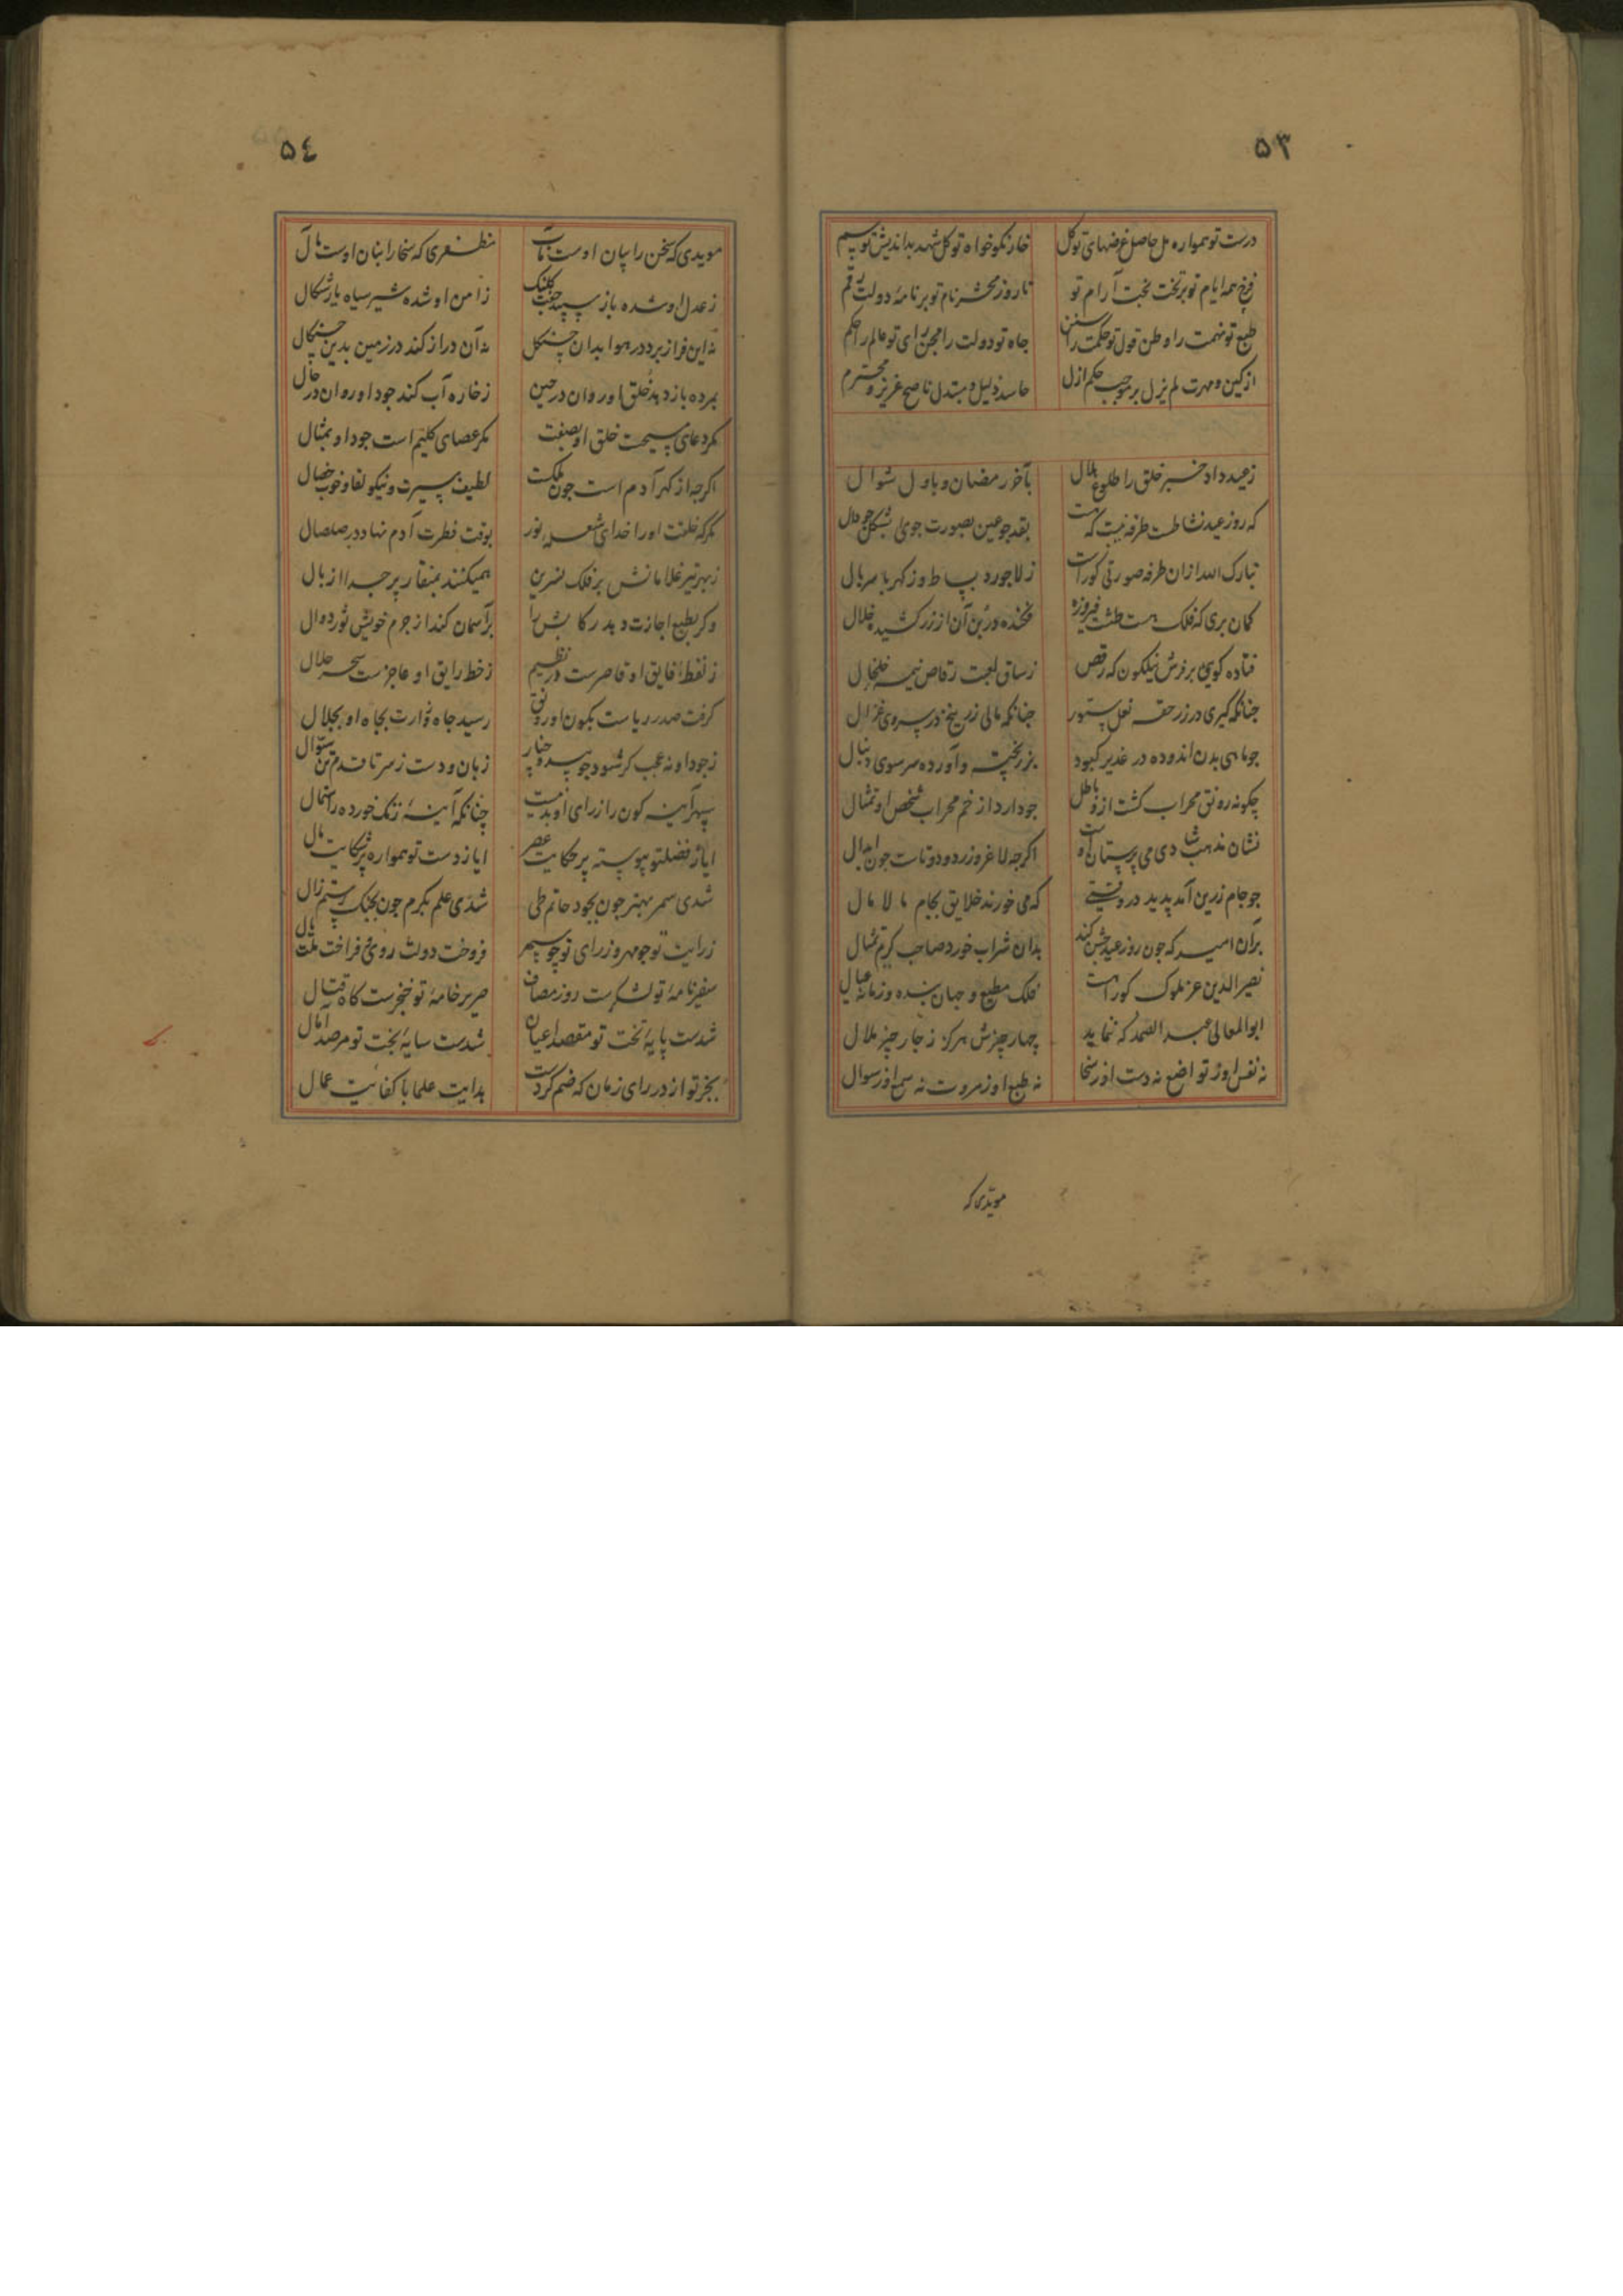 ۵۳
درست تو همواره مل حاصل غرضهای تو کل
خار نکوخواه تو کل شهد بداندیش تو سم
فرخ همه ایام تو بر تخت بخت آرام تو
تا روز محشر نام تو بر نامهٔ دولت رقم
طبع تو نهمت را وطن قول تو حکمت را سنن
جاه تو دولت را مجن رای تو عالم را حکم
از کین و مهرت لم یزل بر موجب حکم ازل
حاسد ذلیل و مبتدل ناصح عزیز و محترم
زعید داد خبر خلق را طلوع هلال
بآخر رمضان و باول شوال
که روز عید نشاطست طرفه نیست که هست
بقد جو عین بصورت جوی بشکل جو دال
تبارک الله ازان طرفه صورتی کوراست
ز لاجورد بساط و ز کهربا سربال
کمان بری که فلک هست طشت فیروزه
فکنده در بن آن از زر کشیده خلال
فتاده کویی بر فرش نیلکون که رقص
ز ساق لعبت رقاص نیمه خلخال
چنانکه کیری در زر حقه نعل ستور
چنانکه مالی زرنیخ در سروی غزال
جو ماهی بدن اندوده در غدیر کبود
بزر پخته و آورده سر سوی دنبال
چکونه رونق محراب کشت ازو باطل
جو دارد از خم محراب شخص او تمثال
نشان مذهب شادی می پرستان اوست
اکرجه لاغر و زرد و دوتاست جون ابدال
جو جام زرین آمد پدید در وقتی
که می خورند خلایق بجام مالامال
بران امید که جون روز عید جشن کند
بدان شراب خورد صاحب کریم تمثال
نصیر الدین عز ملوک کوراست
فلک مطیع و جهان بنده و زمانه عیال
ابوالمعالی عبد الصمد که ننماید
چهار چیزش هرکز ز جار چیز ملال
نه نفس او ز تواضع نه دست او ز سخا
نه طبع او ز مروت نه سمع او ز سوال
مویدی که
۵٤
مویدی که سخن را بیان اوست مآب
مظفری که سخا را بنان اوست مآل
ز عدل او شده باز سپید جفت کلنک
ز امن او شده شیر سیاه یار شکال
نه این فراز برد در هوا بدان چنکل
نه آن دراز کند در زمین بدین چنکال
بمرده باز دهد خلق او روان در حین
ز خاره آب کند جود او روان در حال
مکر دعای مسیحست خلق او بصفت
مکر عصای کلیم است جود او بمثال
اکرجه از کهر آدم است جون ملکست
لطیف سیرت و نیکو لقا و خوب خصال
مکر که خلقت او را خدای شعله نور
بوقت فطرت آدم نهاد در صلصال
ز بهر تیر غلامانش بر فلک نسرین
همیکنند بمنقار پر جدا از بال
وکر بطبع اجازت دهد رکابش را
بر آسمان کند از جرم خویش ثور دوال
ز لفظ فایق او قاصرست در نظیم
ز خط رایق او عاجزست سحر حلال
کرفت صدر ریاست بکون او رونق
رسید جاه وزارت بجاه او بجلال
ز جود او نه عجب کر شود جو سرو و چنار
زبان و دست ز سر تا قدم تن سؤال
سپهر آینه کون را ز رای او مددست
چنانکه آینهٔ زنک خورده را ز صقال
ایا ز فضل تو پیوسته پر حکایت عصر
ایا ز دست تو همواره پر شکایت مال
شدی سمر بهنر جون بجود حاتم طی
شدی علم بکرم جون بجنک رستم زال
ز رایت تو جو مهر و ز رای تو جو سپهر
فروخت دولت روی و فراخت ملت یال
سفیر نامهٔ تو لشکرست روز مصاف
صریر خامهٔ تو خنجرست کاه قتال
شدست پایهٔ تخت تو مقصد اعیان
شدست سایهٔ بخت تو مرصد آمال
بجز تو از در رای زمان که ضم کردست
بدایت علما با کفایت عمال